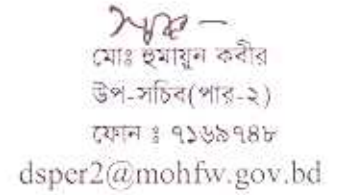 মোঃ হুমায়ুন কবীর
উপ-সচিব(পার-২)
ফোন ঃ ৭১৬৯৭৪৮
dsper2@mohfw.gov.bd